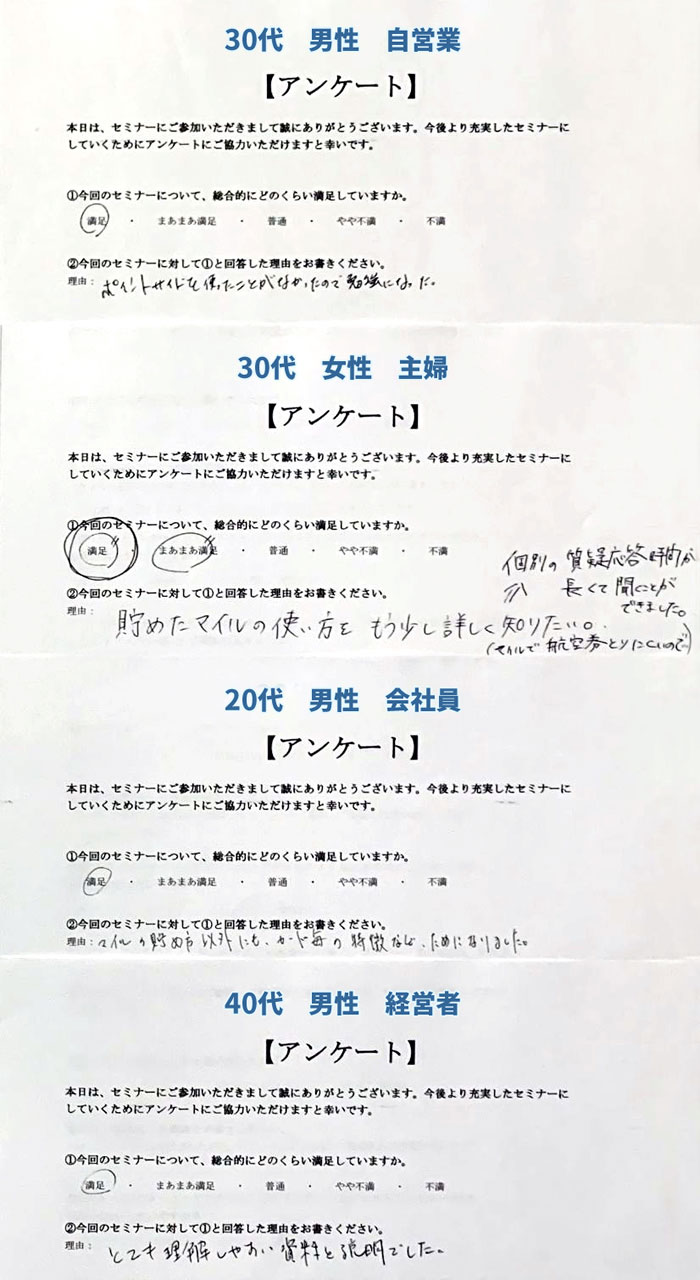 30代 男性 自営業
【アンケート】
本日は、セミナーにご参加いただきまして誠にありがとうございます。今後より充実したセミナーに
していくためにアンケートにご協力いただけますと幸いです。
①今回のセミナーについて、総合的にどのくらい満足していますか。
満足 ・ まあまあ満足 ・ 普通 ・ やや不満 ・ 不満
②今回のセミナーに対して①と回答した理由をお書きください。
理由: ポイントサイトを使ったことがなかったので勉強になった。
30代 女性 主婦
【アンケート】
本日は、セミナーにご参加いただきまして誠にありがとうございます。今後より充実したセミナーに
していくためにアンケートにご協力いただけますと幸いです。
①今回のセミナーについて、総合的にどのくらい満足していますか。
満足 ・ まあまあ満足 ・ 普通 ・ やや不満 ・ 不満
個別の質疑応答時間が
長くて聞くことが
できました。
②今回のセミナーに対して①と回答した理由をお書きください。
理由: 貯めたマイルの使い方をもう少し詳しく知りたい。
(マイルで航空券とりにくいので)
20代 男性 会社員
【アンケート】
本日は、セミナーにご参加いただきまして誠にありがとうございます。今後より充実したセミナーに
していくためにアンケートにご協力いただけますと幸いです。
①今回のセミナーについて、総合的にどのくらい満足していますか。
満足 ・ まあまあ満足 ・ 普通 ・ やや不満 ・ 不満
②今回のセミナーに対して①と回答した理由をお書きください。
理由: マイルの貯め方以外にも、カード毎の特徴など、ためになりました。
40代 男性 経営者
【アンケート】
本日は、セミナーにご参加いただきまして誠にありがとうございます。今後より充実したセミナーに
していくためにアンケートにご協力いただけますと幸いです。
①今回のセミナーについて、総合的にどのくらい満足していますか。
満足 ・ まあまあ満足 ・ 普通 ・ やや不満 ・ 不満
②今回のセミナーに対して①と回答した理由をお書きください。
理由: とても理解しやすい資料と説明でした。